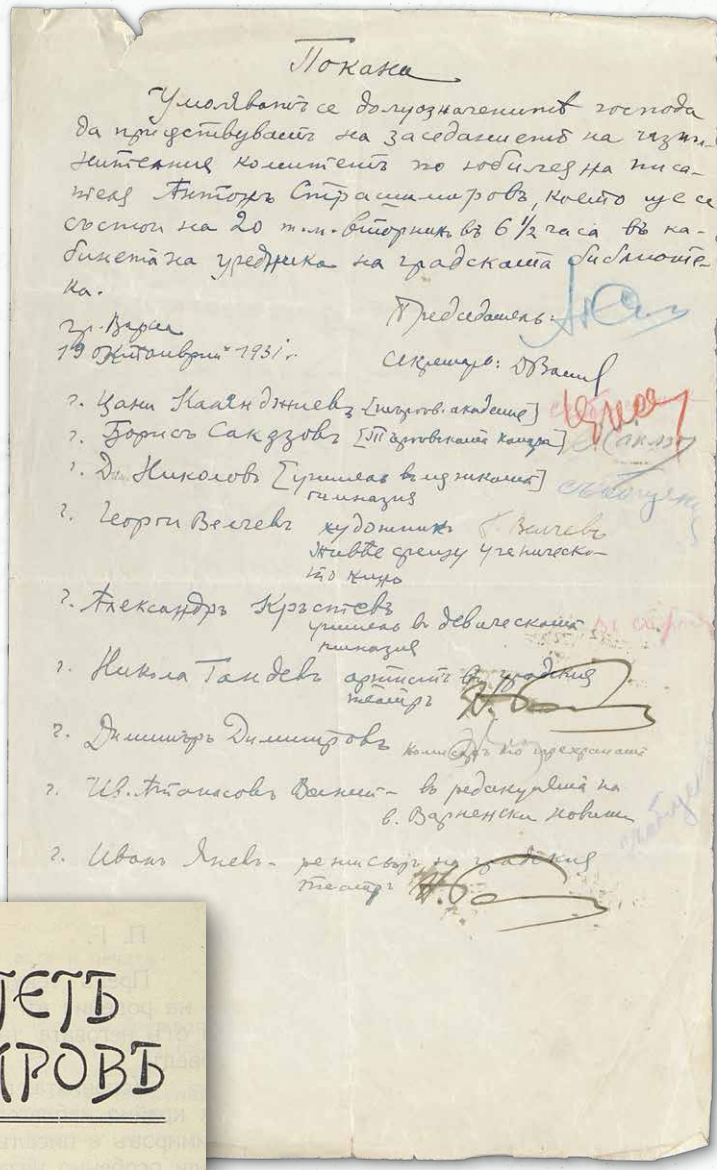 Покана
Умоляватъ се долуозначенитѣ господа
да присѫтствуватъ на заседанието на изпъл-
нителния комитетъ по юбилея на писа-
теля Антонъ Страшимировъ, което ще се
състои на 20 т.м. вторникъ въ 6 1/2 часа въ ка-
бинета на уредника на градската библиоте-
ка.
гр. Варна
19 Октомврий 1931 г.
Председатель:
Секретарь: ДВасил
г. Цани Калянджиевъ [търгов. академия]
г. Борисъ Сакъзовъ [Търговската камара]
г. Д. Николовъ [учитель въ мѫжката]
гимназия
г. Георги Велчевъ художникъ Г. Велчевъ
живѣе срещу ученическо-
то кино
г. Александъръ Кръстевъ
учитель въ девическата
гимназия
г. Никола Гандевъ артистъ въ градския
театръ
г. Димитъръ Димитровъ комисаръ по прехраната
г. Ив. Атанасовъ - въ редакцията на
в. Варненски новини
г. Иванъ Яневъ - режисьоръ на градския
театръ
ТЕТЪ
РОВЪ
П. Г.